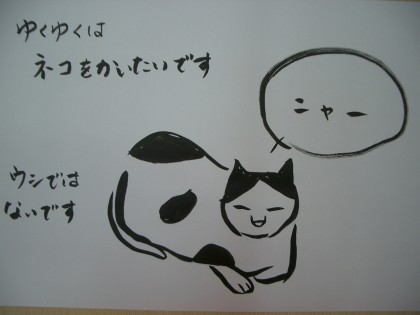 ゆくゆくは
ネコをかいたいです
ニャー
ウシでは
ないです